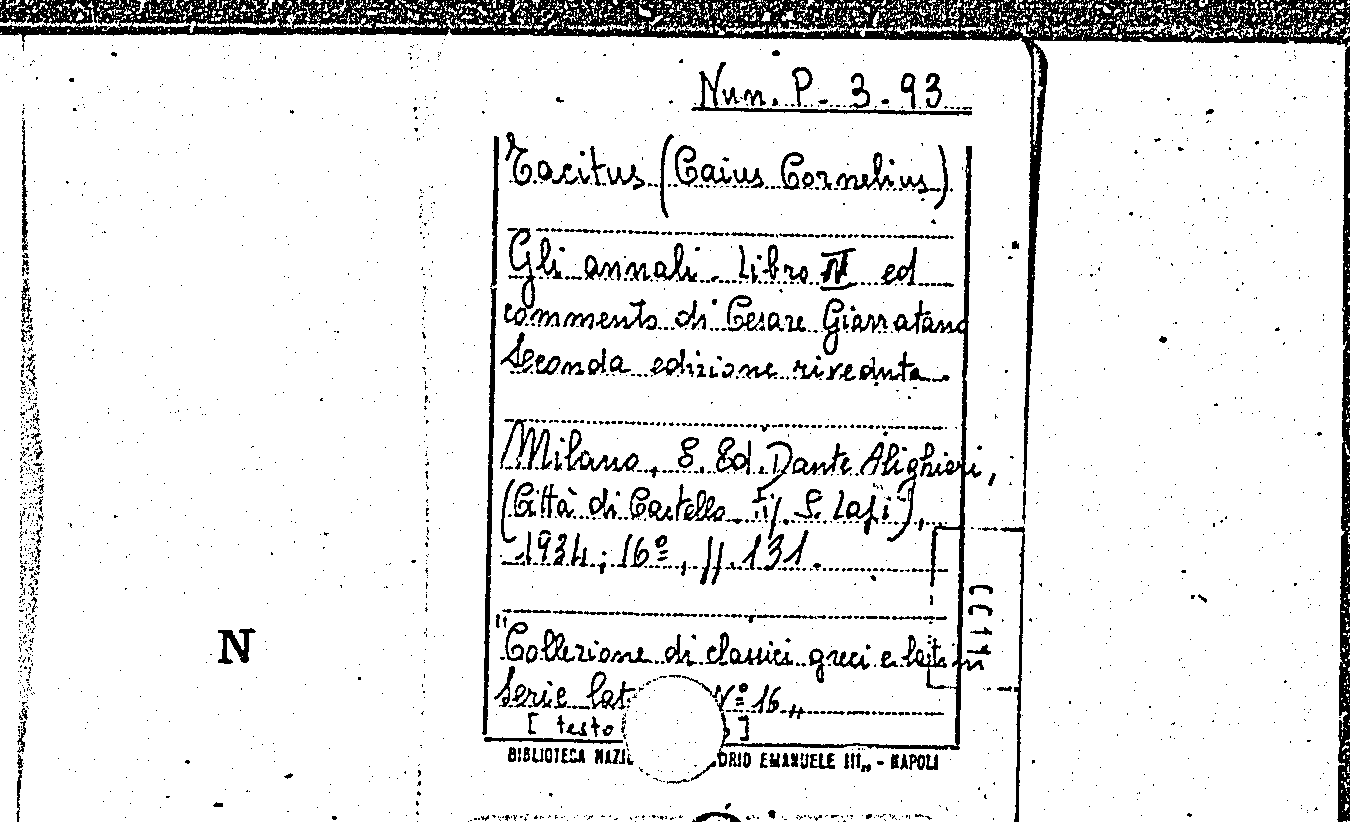 Nun. P. 3. 93
Tacitus (Caius Cornelius)
Gli annali. Libro ed
commento di Cesare Giarratano
Seconda edizione riveduta.
Milano, S. Ed. Dante Alighieri,
(Città di Castello. Tip. S. Lapi),
1934; 16º, pp. 131.
"Collezione di classici greci e latini
Serie lat Nº 16„
[ testo ]
BIBLIOTECA NAZI ORIO EMANUELE III„ - NAPOLI
N